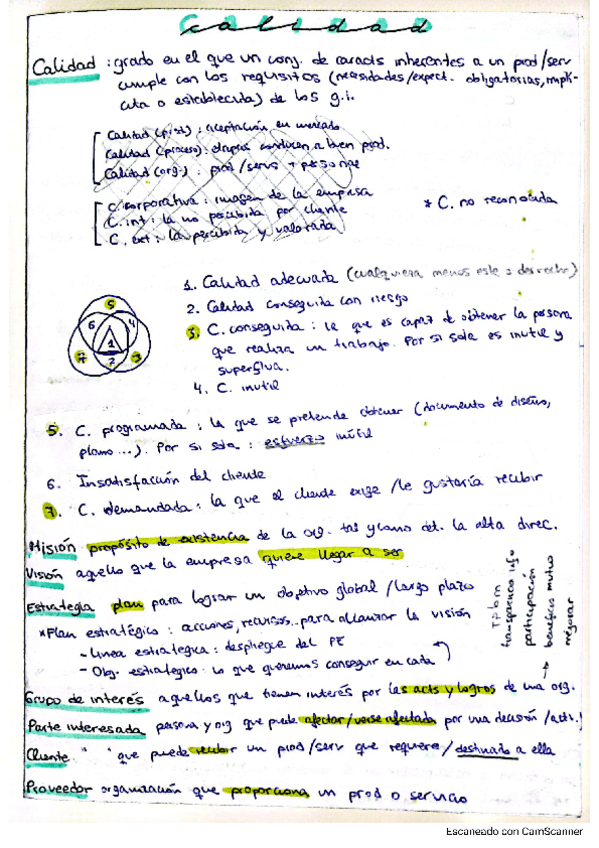 Calidad
Calidad : grado en el que un conj. de caracts inherentes a un prod/serv
cumple con los requisitos (necesidades/expect. obligatorias, implí-
cita o establecida) de los g.i.
Calidad (prod) : aceptación en mercado
Calidad (proceso) : etapas conducen a buen prod.
Calidad (org.) : prod/servs + personae
C. corporativa : imagen de la empresa
C. int : la no percibida por cliente
C. ext : la percibida y valorada
* C. no reconocida
1. Calidad adecuada (cualquiera menos este o derecho)
2. Calidad conseguida con riesgo
3. C. conseguida : la que es capaz de obtener la persona
que realiza un trabajo. Por si sola es inutil y
superflua.
4. C. inutil
5
6 4
1
7 2 3
5. C. programada : la que se pretende obtener (documento de diseño,
plano ...). Por si sola : esfuerzo inútil
6. Insatisfacción del cliente
7. C. demandada : la que el cliente exige /le gustaría recibir
Misión propósito de existencia de la org. tal y como det. la alta direc.
Visión aquello que la empresa quiere llegar a ser
Estrategia plan para lograr un objetivo global /largo plazo
*Plan estratégico : acciones, recursos.. para alcanzar la visión
- Linea estrategica : despliegue del PE
- Obj. estrategico : lo que queremos conseguir en cada
transparencia info
participación
→ beneficio mutuo
mejorar
Grupo de interés aquellos que tienen interés por las acts y logros de una org.
Parte interesada persona y org que puede afectar/verse afectada por una decisión /activ.
Cliente " " que puede recibir un prod/serv que requiere/destinado a ella
Proveedor organización que proporciona un prod o servicio
Escaneado con CamScanner